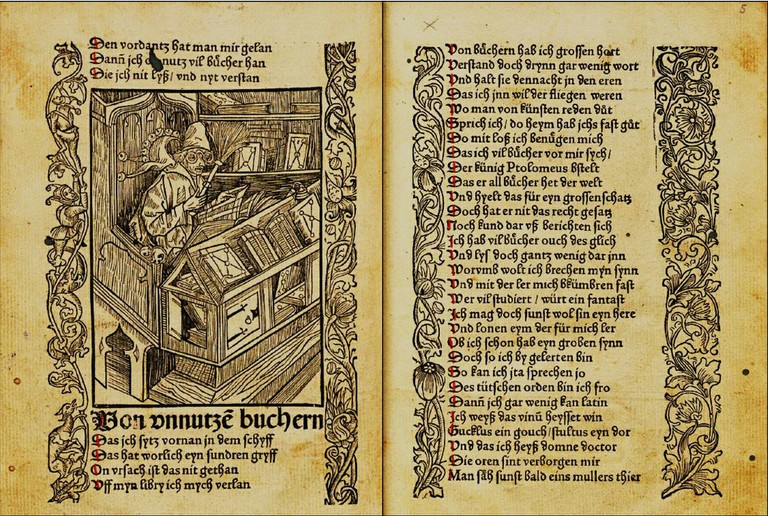 5
Den vordantz hat man mir gelan
Dann̄ jch on nutz vil bůcher han
Die jch nit lyß / vnd nyt verstan
Von vnnutzē buchern
Das ich sytz vornan jn dem schyff
Das hat worlich eyn sundren gryff
On vrsach ist das nit gethan
Vff myn libry ich mych verlan
Von bůchern hab ich grossen hort
Verstand doch drynn gar wenig wort
Vnd halt sie dennacht jn den eren
Das ich jnn wil der fliegen weren
Wo man von künsten reden důt
Sprich ich / do heym hab jchs fast gůt
Do mit loß ich benůgen mich
Das ich vil bůcher vor mir sych /
Der künig Ptolomeus bstelt
Das er all bůcher het der welt
Vnd hyelt das für eyn grossen schatz
Doch hat er nit das recht gesatz
Noch kund dar vß berichten sich
Ich hab vil bůcher ouch des glich
Vnd lys doch gantz wenig dar jnn
Worvmb wolt ich brechen myn synn
Vnd mit der ler mich bkümbren fast
Wer vil studiert / würt ein fantast
Ich mag doch sunst wol sin eyn here
Vnd lonen eym der für mich ler
Ob ich schon hab eyn groben synn
Doch so ich by gelerten bin
So kan ich jta sprechen jo
Des tütschen orden bin ich fro
Dann̄ jch gar wenig kan latin
Ich weyß das vinū heysset win
Gucklus ein gouch / stultus eyn dor
Vnd das ich heyß domne doctor
Die oren sint verborgen mir
Man sǎh sunst bald eins mullers thier